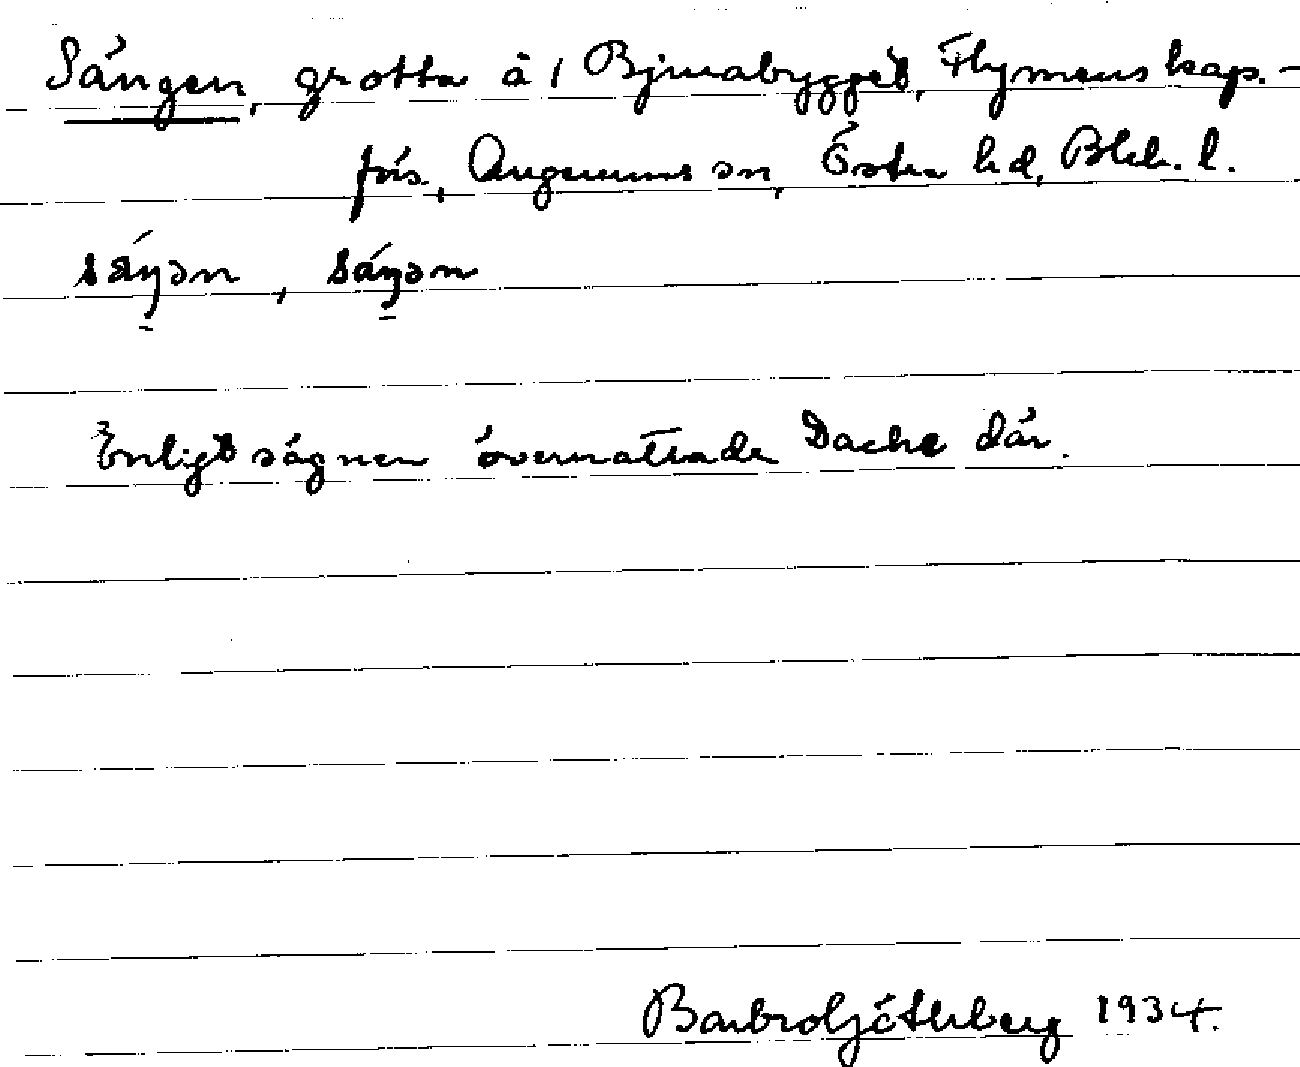 Sängen, grotta å 1 Björnabygget, Flymens kap.-
förs., Augerums sn, Östra hd, Blek. l.
säŋən, sáŋən
Enligt sägnen övernattade Dacke där.
Barbro Götherberg 1934.